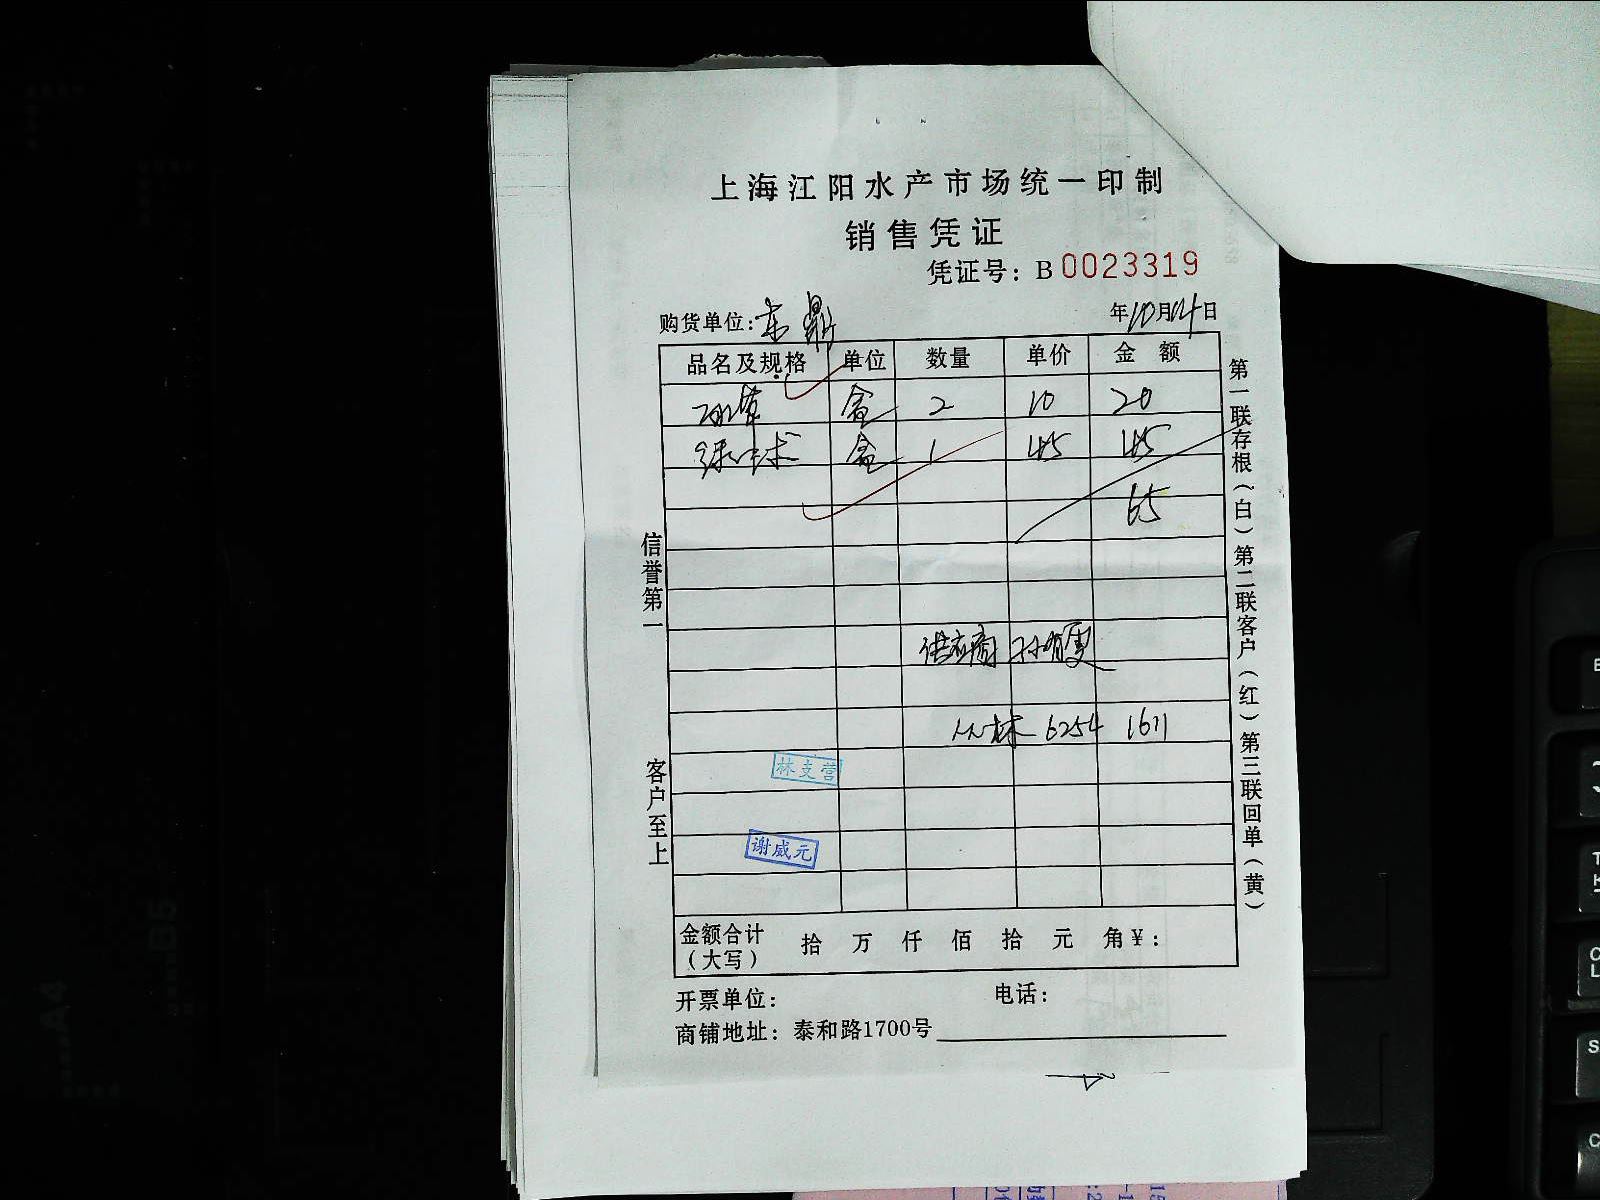 上海江阳水产市场统一印制
销售凭证
凭证号：B 0023319
购货单位：东鼎
年10月14日
品名及规格 单位 数量 单价 金额
盒 2 10 20
绿中球 盒 1 45 45
65
供应商 孙有更
林 6254 1611
林支营
谢威元
金额合计（大写） 拾 万 仟 佰 拾 元 角 ¥：
开票单位： 电话：
商铺地址：泰和路1700号
信誉第一
客户至上
第一联存根（白）第二联客户（红）第三联回单（黄）
A4
B5